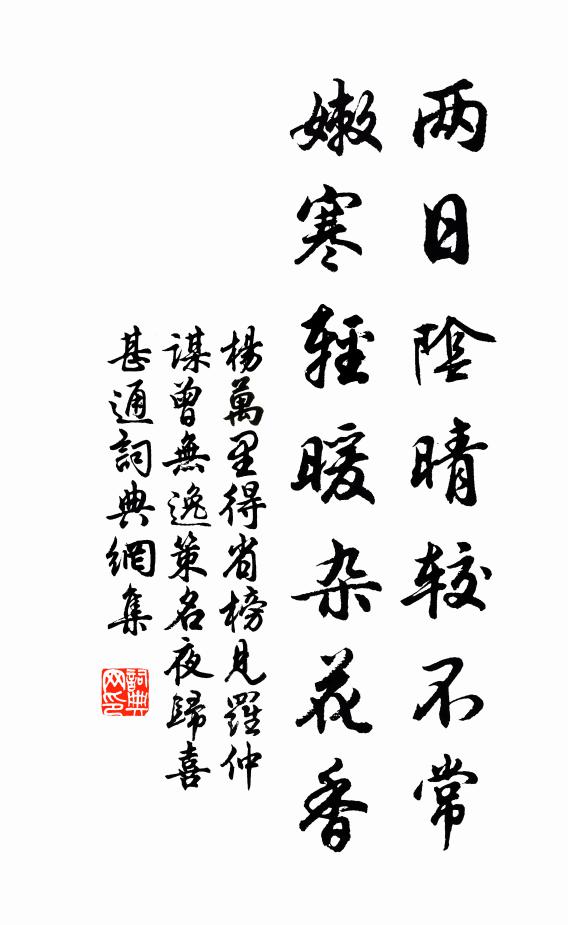 两日陰晴较不常
嫩寒輕暖杂花香
楊萬里得省榜見羅仲
謀曾無逸策名夜歸喜
甚通詞典網集
詞典
网印